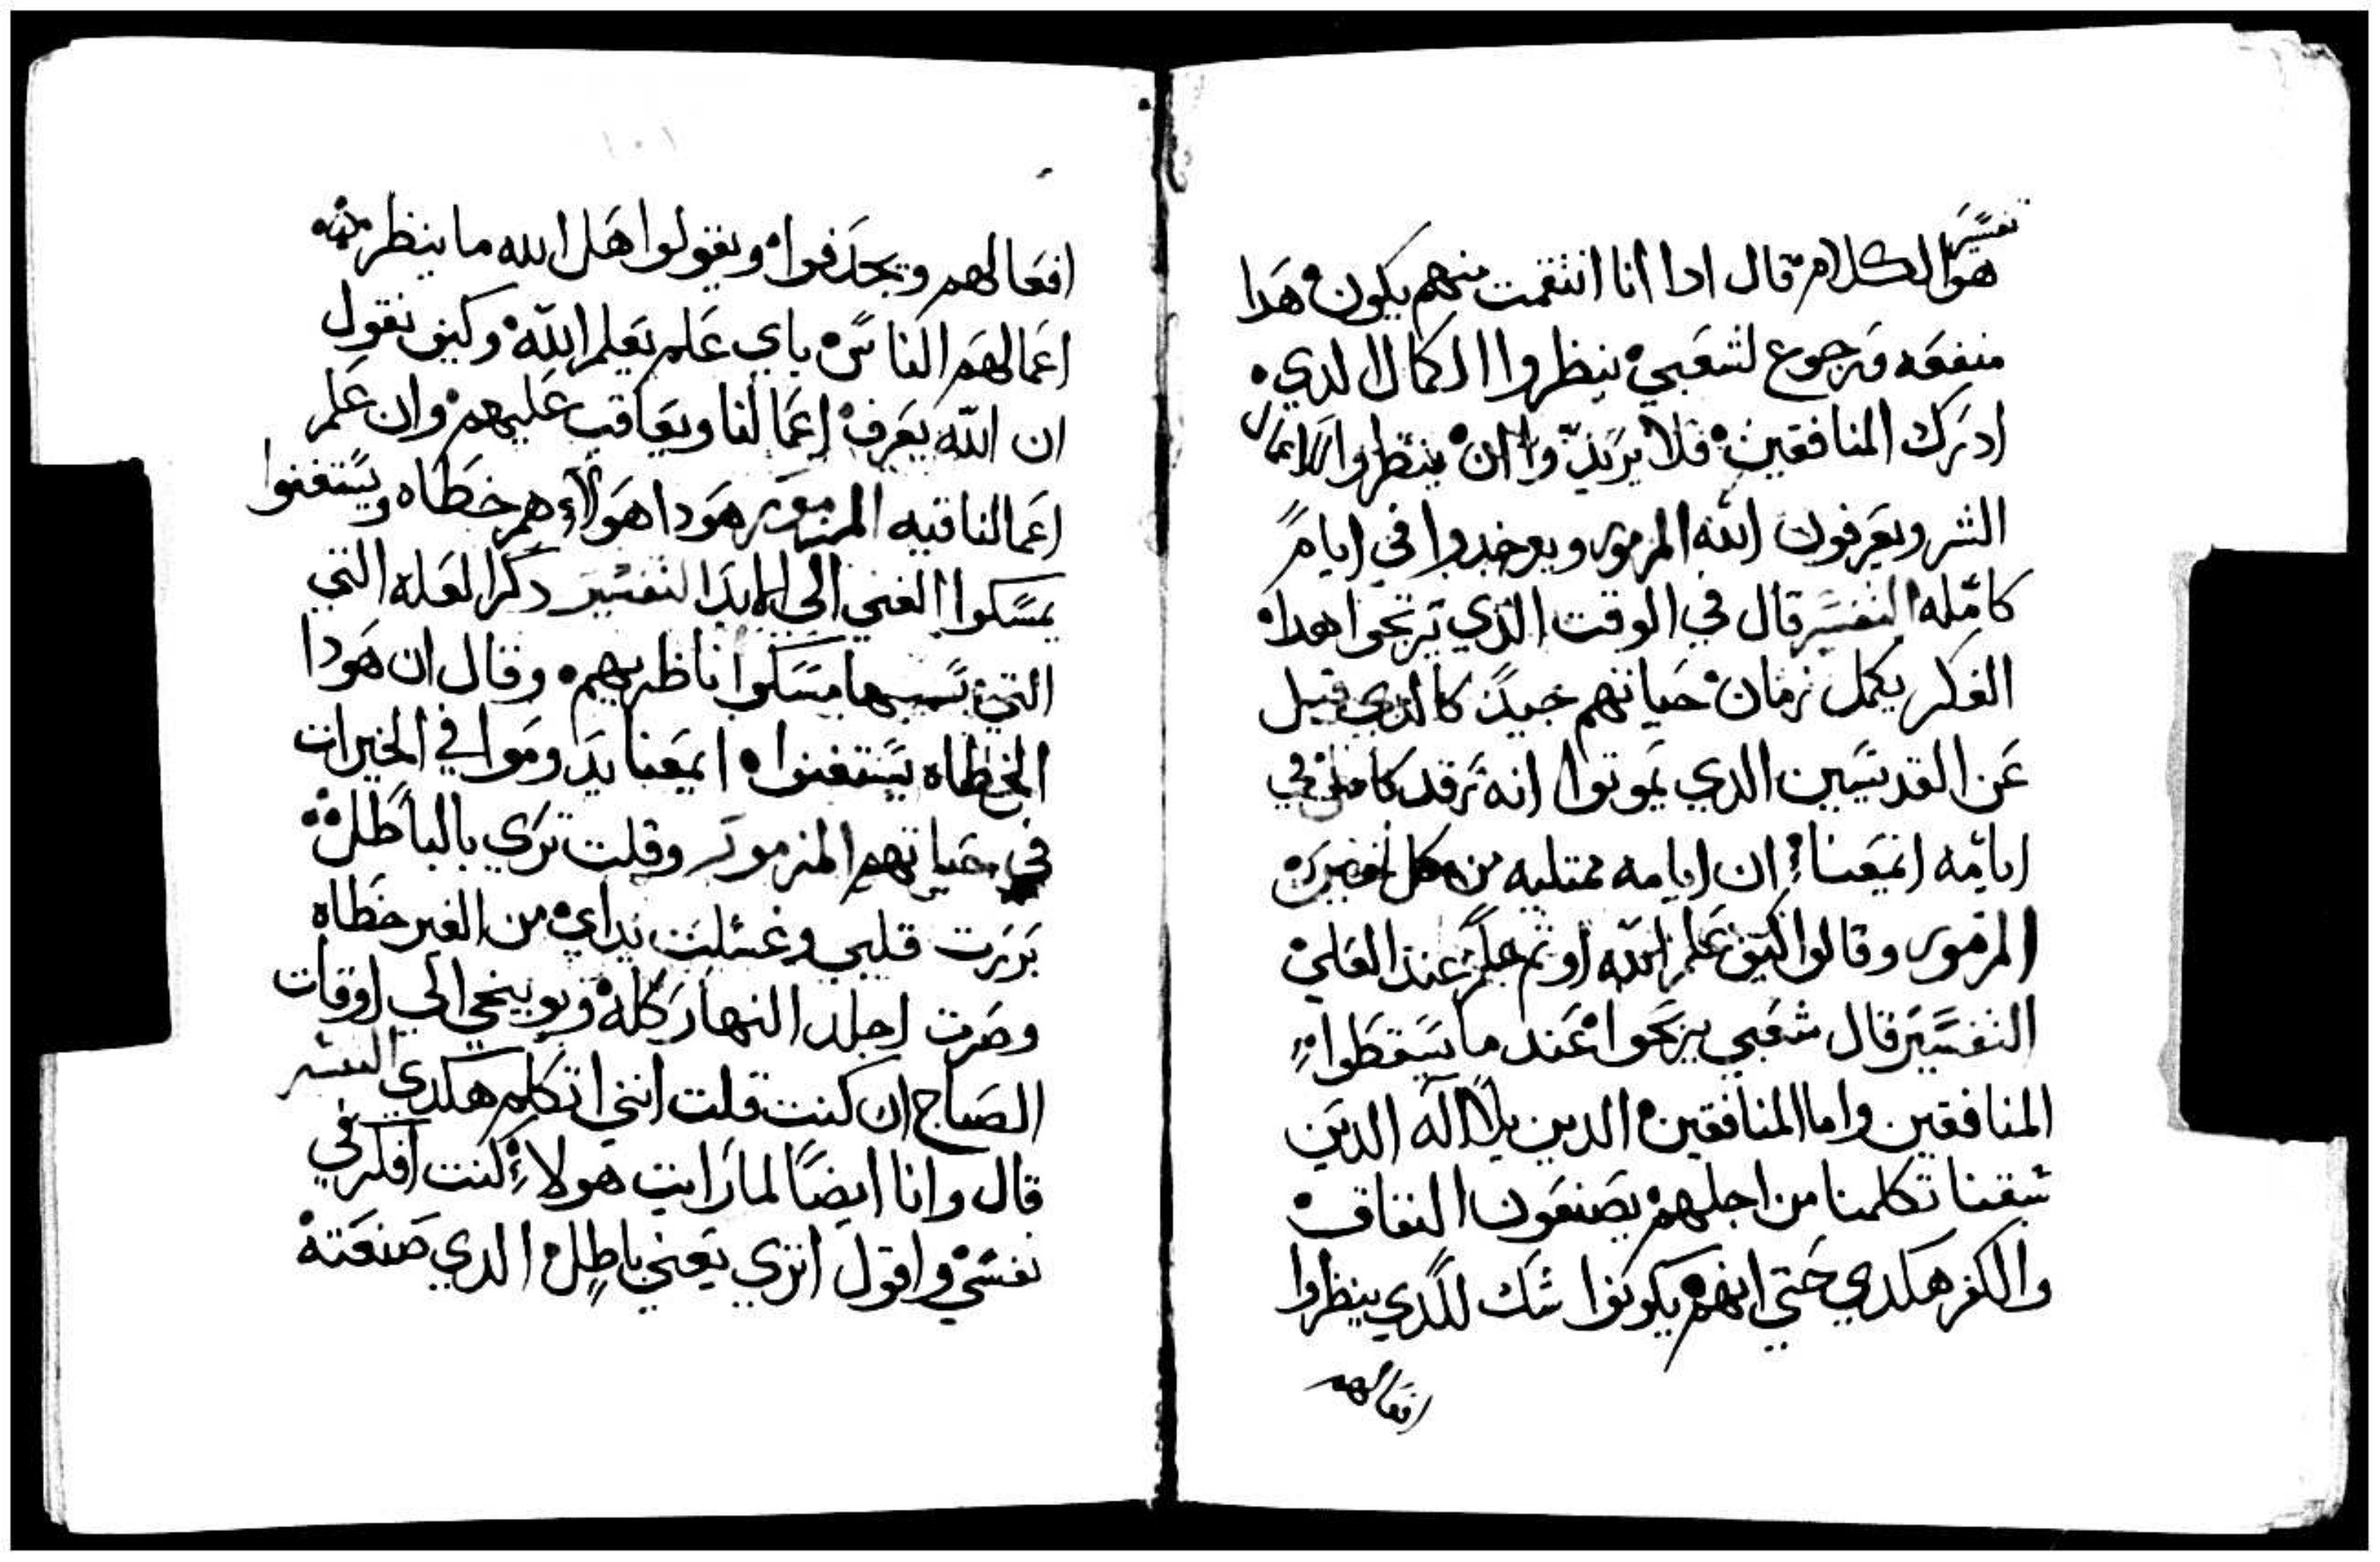 تفسير
هو الكلام قال ادا انا انتقمت منهم يكون هدا
منفعه ورجوع لشعبي ينظروا الكمال الدي
ادرك المنافقين فلا يريدوا ان ينظروا الاعمال
الشر ويعرفون الله المزمور ويوخدوا في ايام
كامله التفسير قال في الوقت الدي تربحوا هدا
الفكر يكمل زمان حياتهم جيد كالدي قيل
عن القديسين الدي يموتوا انه رقد كامل في
ايامه ايمعنا ان ايامه ممتليه من كل
المزمور وقالوا كيف علم الله او تم علم عند العلي
التفسير قال شعبي يربحوا عند ما يسقطوا
المنافقين واما المنافقين الدين بلا اله الدين
سبقنا تكلمنا من اجلهم يصنعون النفاق
والكفر هكدي حتي انهم يكونوا شك للدي ينظروا
افعالهم
١٠١
افعالهم ويجدفوا ويقولوا هل الله ما ينظر منه
اعمالهم الناس باي علم يعلم الله وكيف نقول
ان الله يعرف اعمالنا ويعاقب عليهم وان علم
اعمالنا فيه المزمور هودا هولاء هم خطاه ويستغنوا
يمسكوا الغني الي الابد التفسير دكر العله التي
التي بسببها مسكوا ناظريهم وقال ان هودا
الخطاه يستغنوا ايمعنا يدوموا في الخيرات
في حياتهم المزمور وقلت تري بالباطل
بررت قلبي وغسلت يداي من الغير خطاه
وصرت اجلد النهار كله وتوبيخي الي اوقات
الصباح ان كنت قلت انني اتكلم هكدي التفسير
قال وانا ايضا لما رايت هولاء كنت افكر في
نفسي واقول اتري يعني باطل الدي صنعته